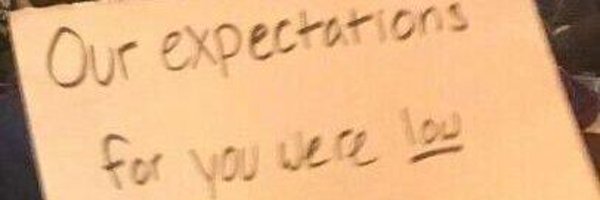 Our expectations
for you were low